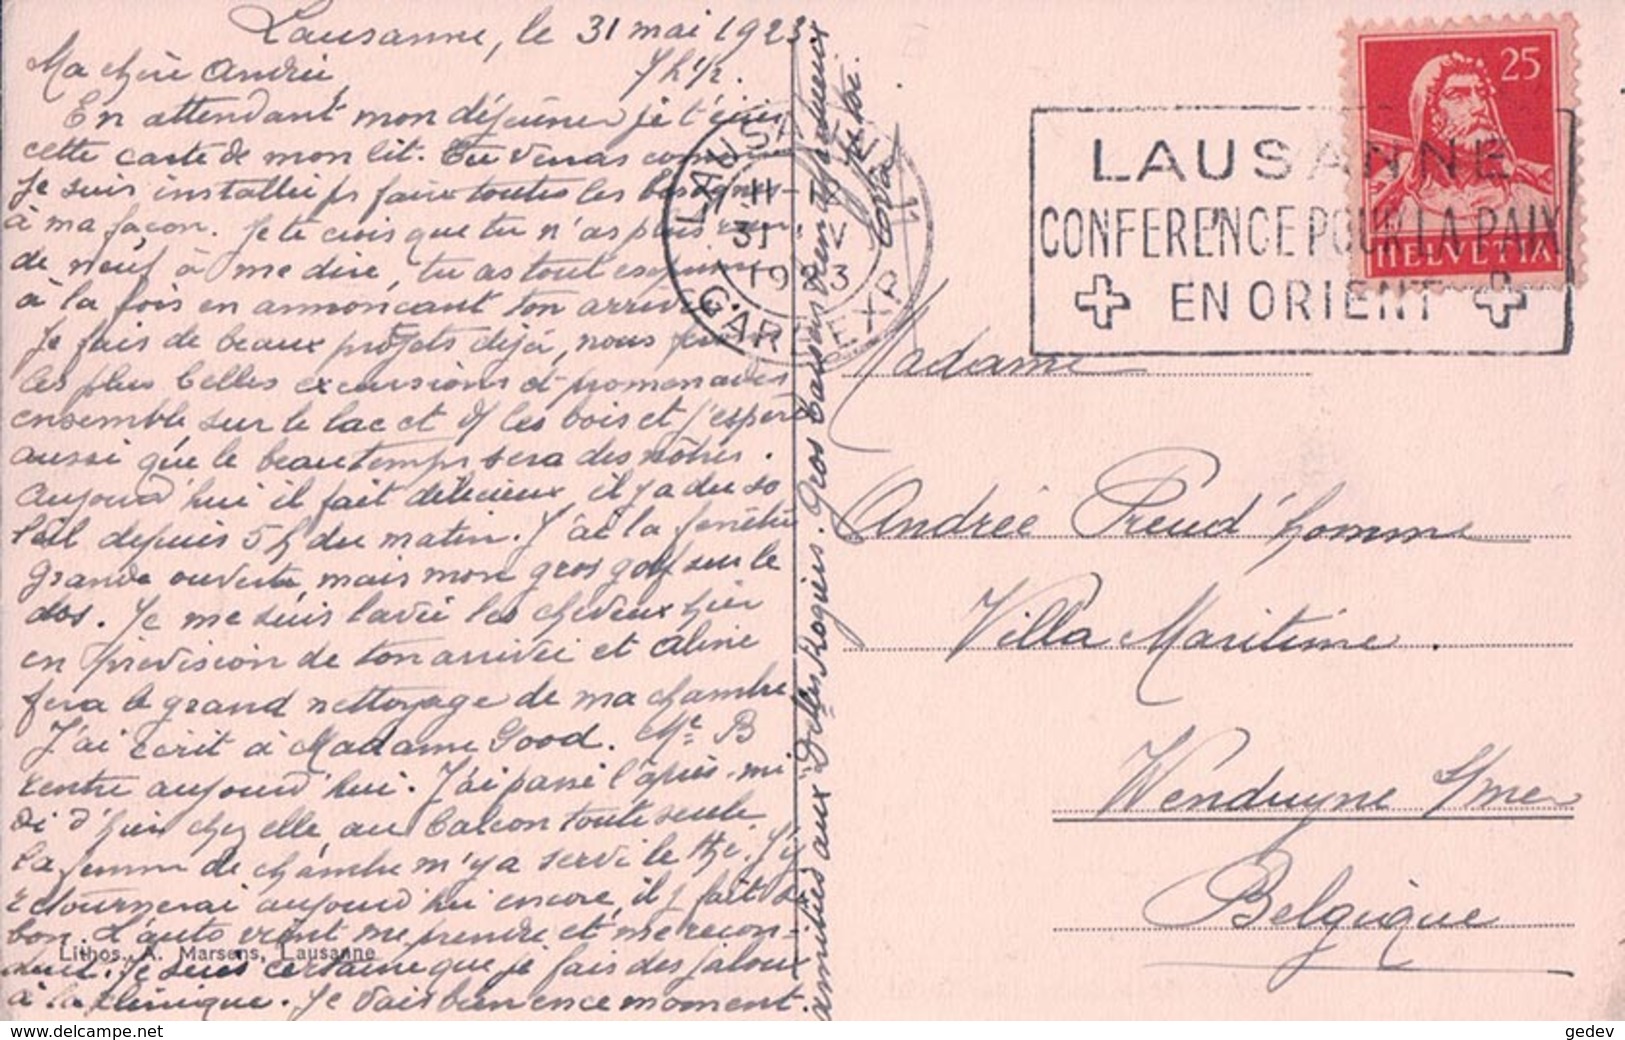 Lausanne, le 31 mai 1923
Ma chère Andrée 7 h 1/2.
En attendant mon déjeuner je t'écris
cette carte de mon lit. Tu verras comme
je suis installée pr faire toutes les besognes
à ma façon. Je te crois que tu n'as plus rien
de neuf à me dire, tu as tout
à la fois en annonçant ton arrivée
Je fais de beaux projets déjà, nous ferons
les plus belles excursions et promenades
ensemble sur le lac et ds les bois et j'espère
aussi que le beau temps sera des nôtres.
Aujourd'hui il fait délicieux, il y a du so
leil depuis 5 h du matin. J'ai la fenêtre
grande ouverte, mais mon gros golf sur le
dos. Je me suis lavée les cheveux hier
en prévision de ton arrivée et Aline
fera le grand nettoyage de ma chambre
J'ai écrit à Madame Good. Me B
rentre aujourd'hui. J'ai passé l'après-mi
di d'hier chez elle au balcon toute seule
la femme de chambre m'y a servi le thé. J'y
retournerai aujourd'hui encore, il y fait si
bon. L'auto vient me prendre et me recon-
duit. Je suis certaine que je fais des jaloux
à la clinique. Je vais bien en ce moment.
amitiés aux Delles Rogiers. Gros baisers bien affectueux
pr toi.
Lithos. A. Marsens, Lausanne
LAUSANNE
11-12
31 V
1923
EXP.
LAUSANNE
CONFERENCE POUR LA PAIX
EN ORIENT
25
HELVETIA
Madame
Andrée Preud'homme
Villa Maritime.
Wenduyne s/mer
Belgique
www.delcampe.net
gedev